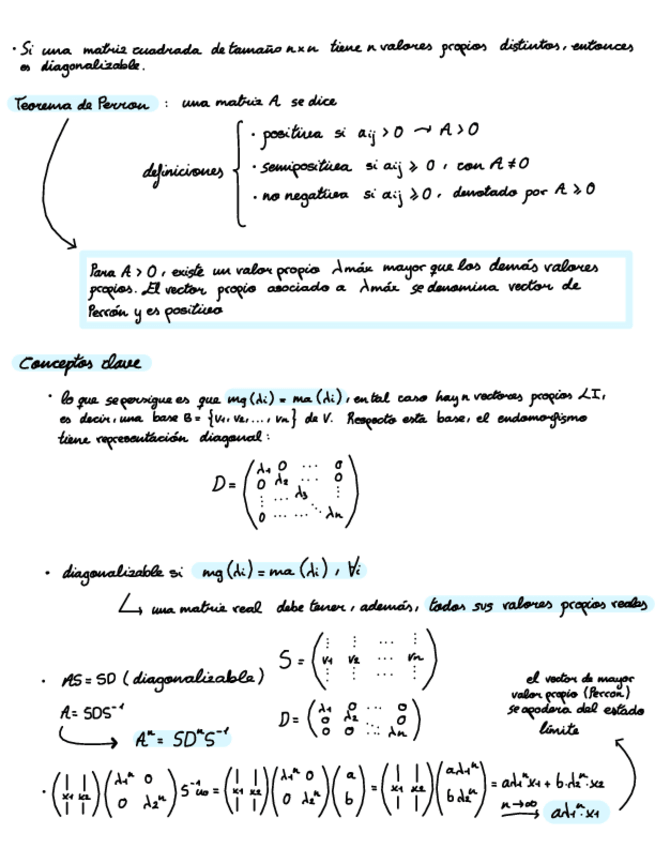 · Si una matriz cuadrada de tamaño n×n tiene n valores propios distintos, entonces
es diagonalizable.
Teorema de Perron : una matriz A se dice
definiciones { · positiva si aij > 0 → A > 0
· semipositiva si aij ⩾ 0, con A ≠ 0
· no negativa si aij ⩾ 0, denotado por A ⩾ 0
Para A > 0, existe un valor propio λmáx mayor que los demás valores
propios. El vector propio asociado a λmáx se denomina vector de
Perrón y es positivo
Conceptos clave
· lo que se persigue es que mg(λi) = ma(λi), en tal caso hay n vectores propios LI,
es decir, una base B = {v1, v2, ..., vn} de V. Respecto esta base, el endomorfismo
tiene representación diagonal:
D = ( λ1 0 ... 0
0 λ2 ... 0
⋮ ... λ3 ⋮
0 ... ... ⋱ λn )
· diagonalizable si mg(λi) = ma(λi), ∀i
↳ una matriz real debe tener, además, todos sus valores propios reales
· AS = SD (diagonalizable)
A = SDS⁻¹
→ Aⁿ = SDⁿS⁻¹
S = ( ⋮ ⋮ ... ⋮
v1 v2 ... vn
⋮ ⋮ ... ⋮ )
D = ( λ1 0 ... 0
0 λ2 0
0 0 ⋱ λn )
el vector de mayor
valor propio (Perron)
se apodera del estado
límite
· ( | | x1 x2 | | ) ( λ1ⁿ 0 0 λ2ⁿ ) S⁻¹u0 = ( | | x1 x2 | | ) ( λ1ⁿ 0 0 λ2ⁿ ) ( a b ) = ( | | x1 x2 | | ) ( aλ1ⁿ bλ2ⁿ ) = aλ1ⁿx1 + b·λ2ⁿ·x2
n→∞ → aλ1ⁿ·x1